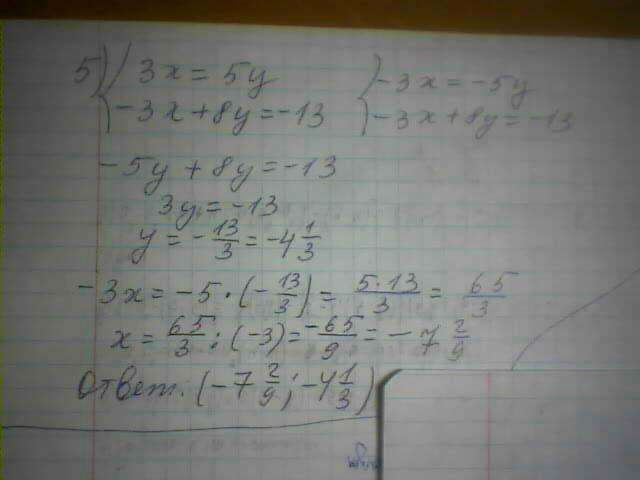 5) 3x = 5y
-3x + 8y = -13
-3x = -5y
-3x + 8y = -13
-5y + 8y = -13
3y = -13
y = -13/3 = -4 1/3
-3x = -5 · (-13/3) = 5·13/3 = 65/3
x = 65/3 : (-3) = -65/9 = -7 2/9
Ответ: (-7 2/9; -4 1/3)